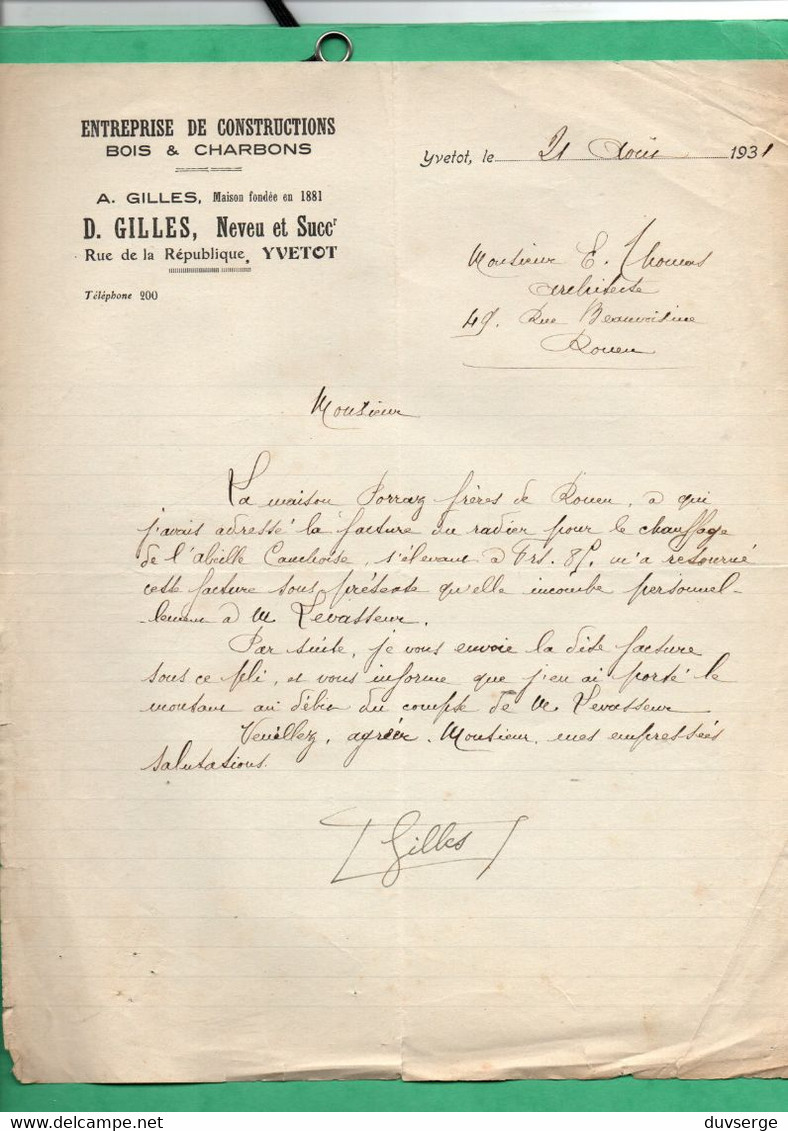 ENTREPRISE DE CONSTRUCTIONS
BOIS & CHARBONS
A. GILLES, Maison fondée en 1881
D. GILLES, Neveu et Succr
Rue de la République, YVETOT
Téléphone 200
Yvetot, le 21 Août 1931
Monsieur E. Thomas
architecte
49, Rue Beauvoisine
Rouen
Monsieur
La maison frères de Rouen, à qui
j'avais adressé la facture du radier pour le chauffage
de l'abeille Cauchoise, s'élevant à Frs. m'a retourné
cette facture sous prétexte qu'elle incombe personnel-
-lement à M. Levasseur.
Par suite, je vous envoie la dite facture
sous ce pli, et vous informe que j'en ai porté le
montant au débit du compte de M. Levasseur
Veuillez, agréer, Monsieur, mes empressées
salutations.
Gilles
duvserge